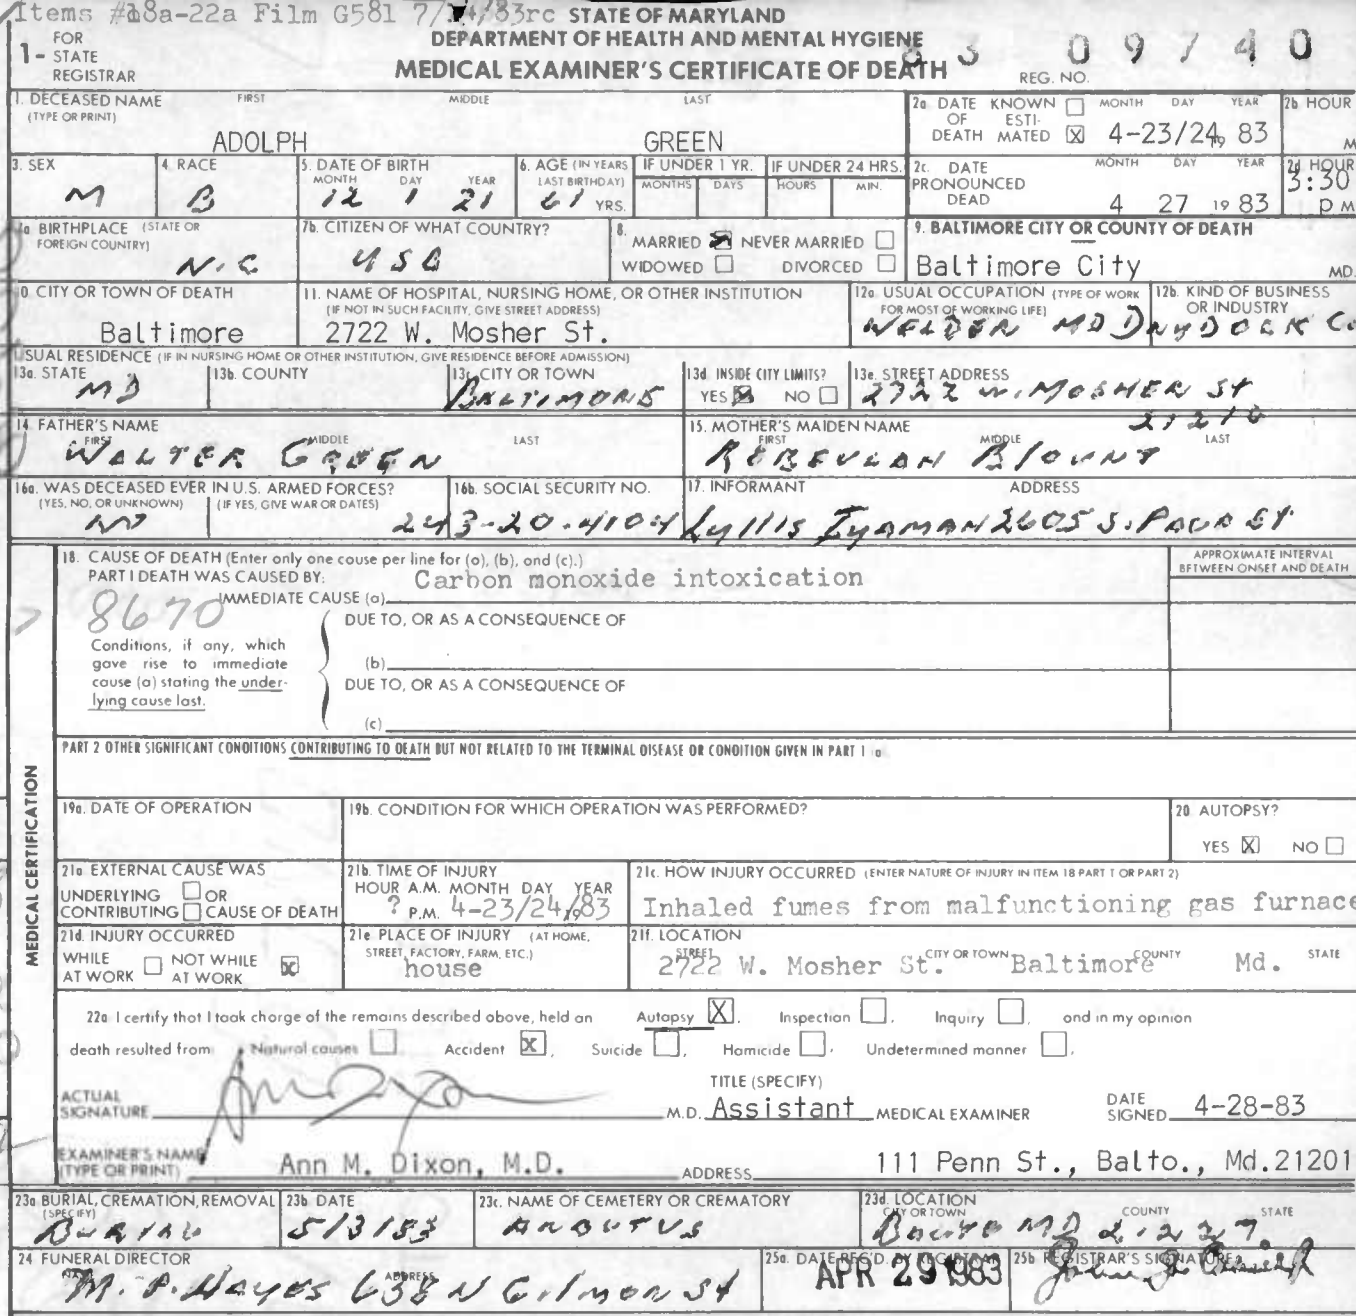 Items #18a-22a Film G581 7/14/83rc STATE OF MARYLAND
DEPARTMENT OF HEALTH AND MENTAL HYGIENE
MEDICAL EXAMINER'S CERTIFICATE OF DEATH
1- FOR STATE REGISTRAR
REG. NO. 83 09740
1. DECEASED NAME (TYPE OR PRINT) FIRST MIDDLE LAST
ADOLPH GREEN
2a. DATE OF DEATH KNOWN ☐ ESTIMATED ☒ MONTH DAY YEAR
4-23/24, 83
2b. HOUR M
3. SEX
M
4. RACE
B
5. DATE OF BIRTH MONTH DAY YEAR
12 1 21
6. AGE (IN YEARS LAST BIRTHDAY)
61 YRS.
IF UNDER 1 YR. MONTHS DAYS
IF UNDER 24 HRS. HOURS MIN.
2c. DATE PRONOUNCED DEAD MONTH DAY YEAR
4 27 19 83
2d. HOUR
3:30 P M
7a. BIRTHPLACE (STATE OR FOREIGN COUNTRY)
N.C
7b. CITIZEN OF WHAT COUNTRY?
USA
8. MARRIED ☒ NEVER MARRIED ☐
WIDOWED ☐ DIVORCED ☐
9. BALTIMORE CITY OR COUNTY OF DEATH
Baltimore City MD.
10. CITY OR TOWN OF DEATH
Baltimore
11. NAME OF HOSPITAL, NURSING HOME, OR OTHER INSTITUTION
(IF NOT IN SUCH FACILITY, GIVE STREET ADDRESS)
2722 W. Mosher St.
12a. USUAL OCCUPATION (TYPE OF WORK FOR MOST OF WORKING LIFE)
WELDER
12b. KIND OF BUSINESS OR INDUSTRY
MD DRYDOCK Co
USUAL RESIDENCE (IF IN NURSING HOME OR OTHER INSTITUTION, GIVE RESIDENCE BEFORE ADMISSION)
13a. STATE
MD
13b. COUNTY
13c. CITY OR TOWN
BALTIMORE
13d. INSIDE CITY LIMITS?
YES ☒ NO ☐
13e. STREET ADDRESS
2722 W. MOSHER St
21216
14. FATHER'S NAME FIRST MIDDLE LAST
WALTER GREEN
15. MOTHER'S MAIDEN NAME FIRST MIDDLE LAST
Blount
16a. WAS DECEASED EVER IN U.S. ARMED FORCES?
(YES, NO, OR UNKNOWN) (IF YES, GIVE WAR OR DATES)
16b. SOCIAL SECURITY NO.
243-20-4104
17. INFORMANT ADDRESS
Lyllis 2605 S.
18. CAUSE OF DEATH (Enter only one couse per line for (a), (b), and (c).)
PART I DEATH WAS CAUSED BY:
IMMEDIATE CAUSE (a) Carbon monoxide intoxication
8670
APPROXIMATE INTERVAL BETWEEN ONSET AND DEATH
DUE TO, OR AS A CONSEQUENCE OF
Conditions, if any, which gave rise to immediate cause (a) stating the underlying cause last.
(b)
DUE TO, OR AS A CONSEQUENCE OF
(c)
PART 2 OTHER SIGNIFICANT CONDITIONS CONTRIBUTING TO DEATH BUT NOT RELATED TO THE TERMINAL DISEASE OR CONDITION GIVEN IN PART 1 a
MEDICAL CERTIFICATION
19a. DATE OF OPERATION
19b. CONDITION FOR WHICH OPERATION WAS PERFORMED?
20 AUTOPSY?
YES ☒ NO ☐
21a. EXTERNAL CAUSE WAS
UNDERLYING ☐ OR
CONTRIBUTING ☐ CAUSE OF DEATH
21b. TIME OF INJURY
HOUR A.M. MONTH DAY YEAR
? P.M. 4-23/24/1983
21c. HOW INJURY OCCURRED (ENTER NATURE OF INJURY IN ITEM 18 PART 1 OR PART 2)
Inhaled fumes from malfunctioning gas furnace
21d. INJURY OCCURRED
WHILE AT WORK ☐ NOT WHILE AT WORK ☒
21e. PLACE OF INJURY (AT HOME, STREET, FACTORY, FARM, ETC.)
house
21f. LOCATION
STREET CITY OR TOWN COUNTY STATE
2722 W. Mosher St. Baltimore Md.
22a I certify that I took charge of the remains described above, held an Autopsy ☒, Inspection ☐, Inquiry ☐, and in my opinion
death resulted from Natural causes ☐ Accident ☒, Suicide ☐, Homicide ☐, Undetermined manner ☐.
ACTUAL SIGNATURE Ann Dixon M.D.
TITLE (SPECIFY)
Assistant MEDICAL EXAMINER
DATE SIGNED 4-28-83
EXAMINER'S NAME (TYPE OR PRINT) Ann M. Dixon, M.D.
ADDRESS 111 Penn St., Balto., Md.21201
23a BURIAL, CREMATION, REMOVAL (SPECIFY)
BURIAL
23b. DATE
5/3/83
23c. NAME OF CEMETERY OR CREMATORY
ARBUTUS
23d. LOCATION CITY OR TOWN COUNTY STATE
Balto MD 21227.
24 FUNERAL DIRECTOR
NAME ADDRESS
M. P. Hayes 638 N Gilmor St
25a. DATE REC'D. BY REGISTRAR
APR 29 1983
25b. REGISTRAR'S SIGNATURE